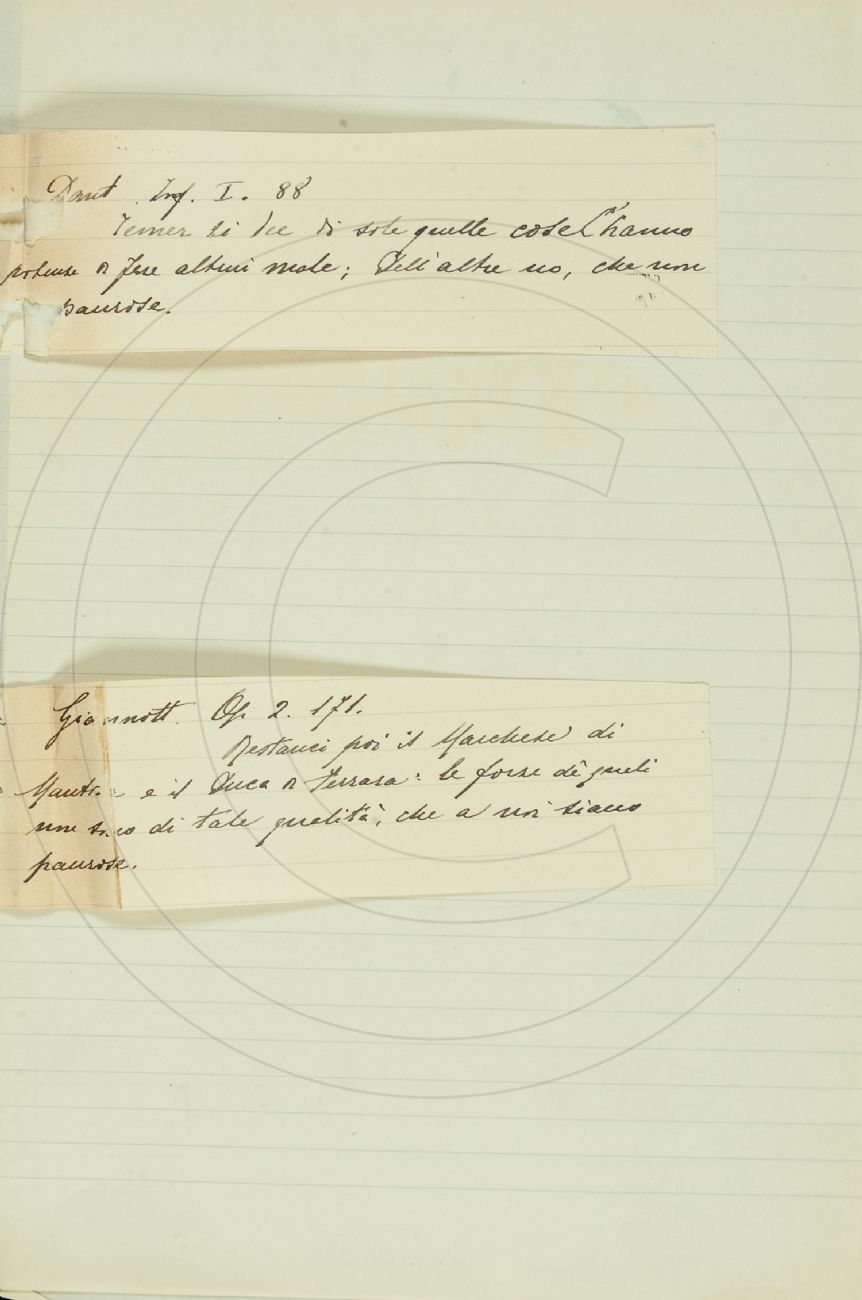 Dant. Inf. I. 88
Temer si dee di sole quelle cose C'hanno
potenza di fare altrui male; Dell'altre no, che non
paurose.
Giannott. Op. 2. 171.
Restanci poi il Marchese di
Mantova e il Duca di Ferrara: le forze de' quali
non sono di tale qualità, che a noi siano
paurose.